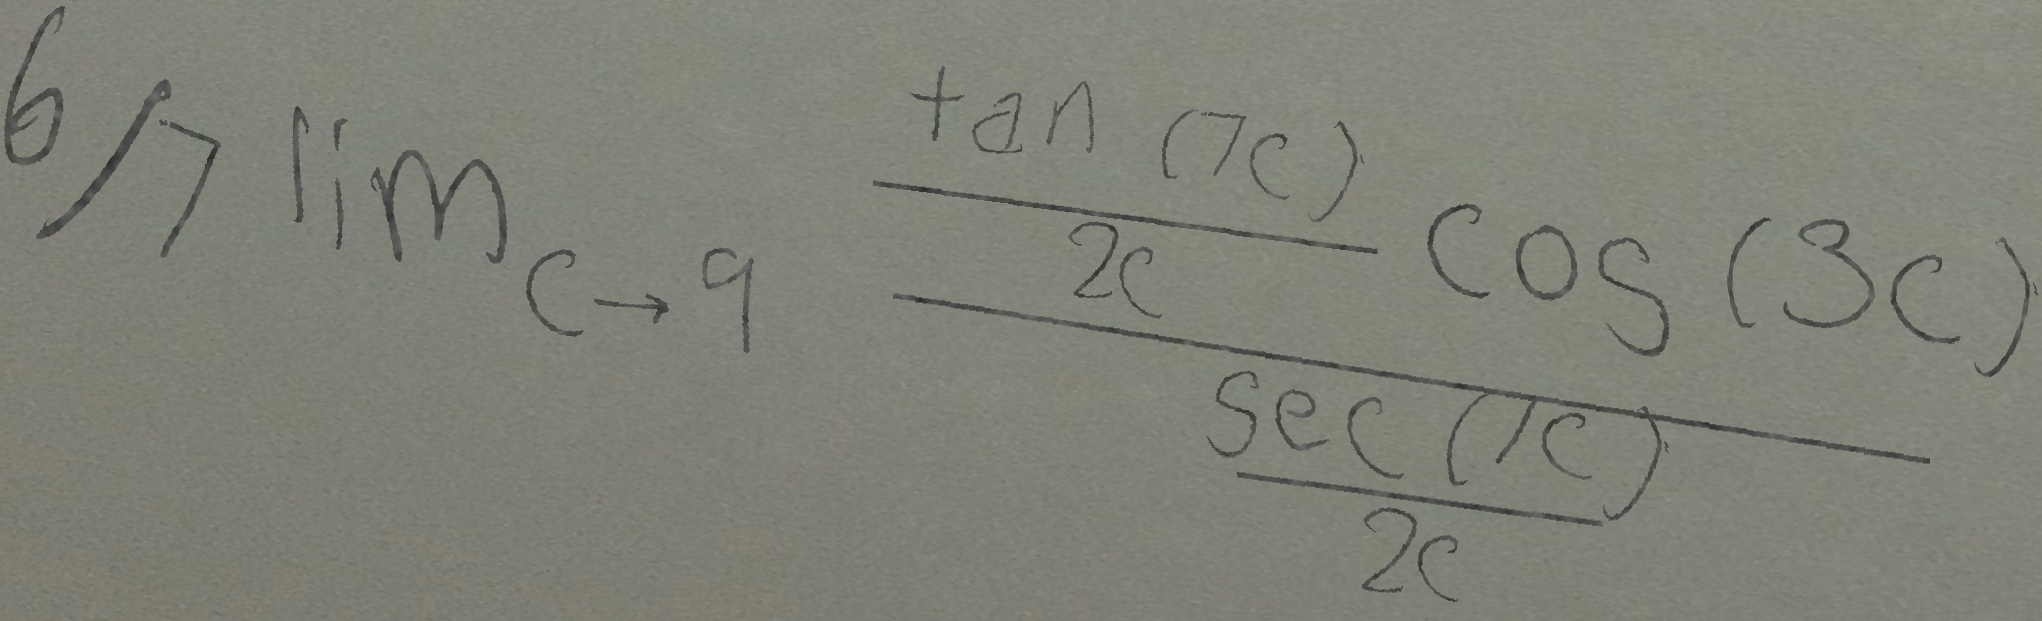 6/7 lim_{c→9} \frac{\frac{tan (7c)}{2c} cos (3c)}{\frac{sec (7c)}{2c}}